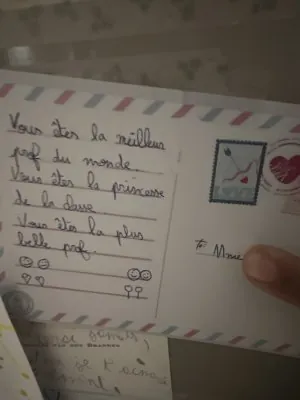 Vous êtes la meilleur
prof du monde.
Vous êtes la princesse
de la danse
Vous êtes la plus
belle prof
to Mme
jamais,
je t'